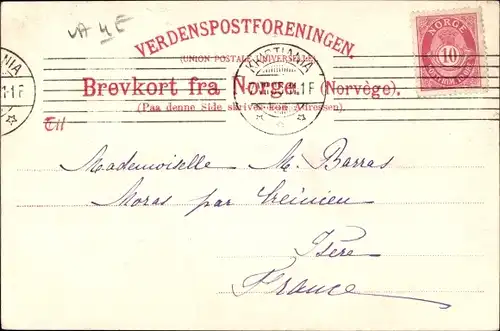 VERDENSPOSTFORENINGEN.
(UNION POSTALE UNIVERSELLE)
Brevkort fra Norge. (Norvège).
(Paa denne Side skrives kun Adressen).
NORGE
10
KRISTIANIA
1 F
Mademoiselle M. Barras
Moras par Crémieu
Isère
France